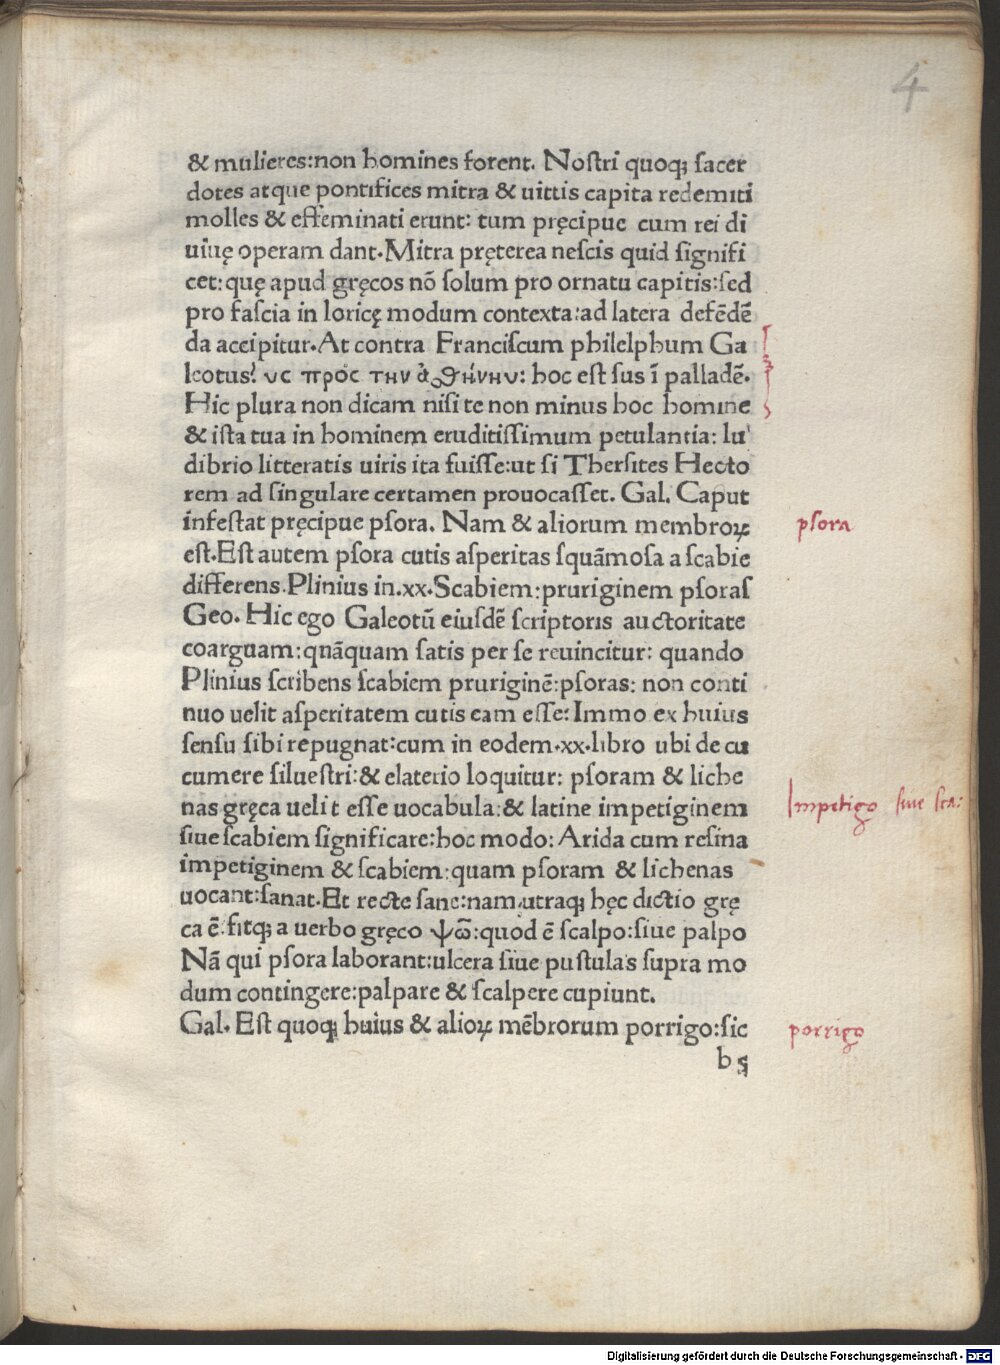 4
& mulieres:non homines forent. Noſtri quoqꝫ ſacer
dotes atque pontifices mitra & uittis capita redemiti
molles & effeminati erunt: tum pręcipue cum rei di
uiuę operam dant. Mitra pręterea neſcis quid ſignifi
cet: quę apud gręcos nõ ſolum pro ornatu capitis:ſed
pro faſcia in loricę modum contexta:ad latera defẽdẽ
da accipitur. At contra Franciſcum philelphum Ga
leotus: υς προς την ἀθήνην: hoc eſt ſus ĩ palladẽ.
Hic plura non dicam niſi te non minus hoc homine
& iſta tua in hominem eruditiſſimum petulantia: lu
dibrio litteratis uiris ita fuiſſe:ut ſi Therſites Hecto
rem ad ſingulare certamen prouocaſſet. Gal. Caput
infeſtat pręcipue pſora. Nam & aliorum membroꝝ
eſt. Eſt autem pſora cutis aſperitas ſquãmoſa a ſcabie
differens. Plinius in.xx. Scabiem:pruriginem pſoraſ
Geo. Hic ego Galeotũ eiuſdẽ ſcriptoris auctoritate
coarguam:quãquam ſatis per ſe reuincitur: quando
Plinius ſcribens ſcabiem pruriginẽ:pſoras: non conti
nuo uelit aſperitatem cutis eam eſſe: Immo ex huius
ſenſu ſibi repugnat:cum in eodem.xx.libro ubi de cu
cumere ſilueſtri:& elaterio loquitur: pſoram & liche
nas gręca uelit eſſe uocabula:& latine impetiginem
ſiue ſcabiem ſignificare:hoc modo: Arida cum reſina
impetiginem & ſcabiem:quam pſoram & lichenas
uocant:ſanat. Et recte ſane:nam utraqꝫ hęc dictio grę
ca ẽ:fitqꝫ a uerbo gręco ψῶ:quod ẽ ſcalpo:ſiue palpo
Nã qui pſora laborant:ulcera ſiue puſtulas ſupra mo
dum contingere:palpare & ſcalpere cupiunt.
Gal. Eſt quoqꝫ huius & alioꝝ mẽbrorum porrigo:ſic
b 5
pſora
Impetigo ſiue ſca:
porrigo
Digitalisierung gefördert durch die Deutsche Forschungsgemeinschaft - DFG